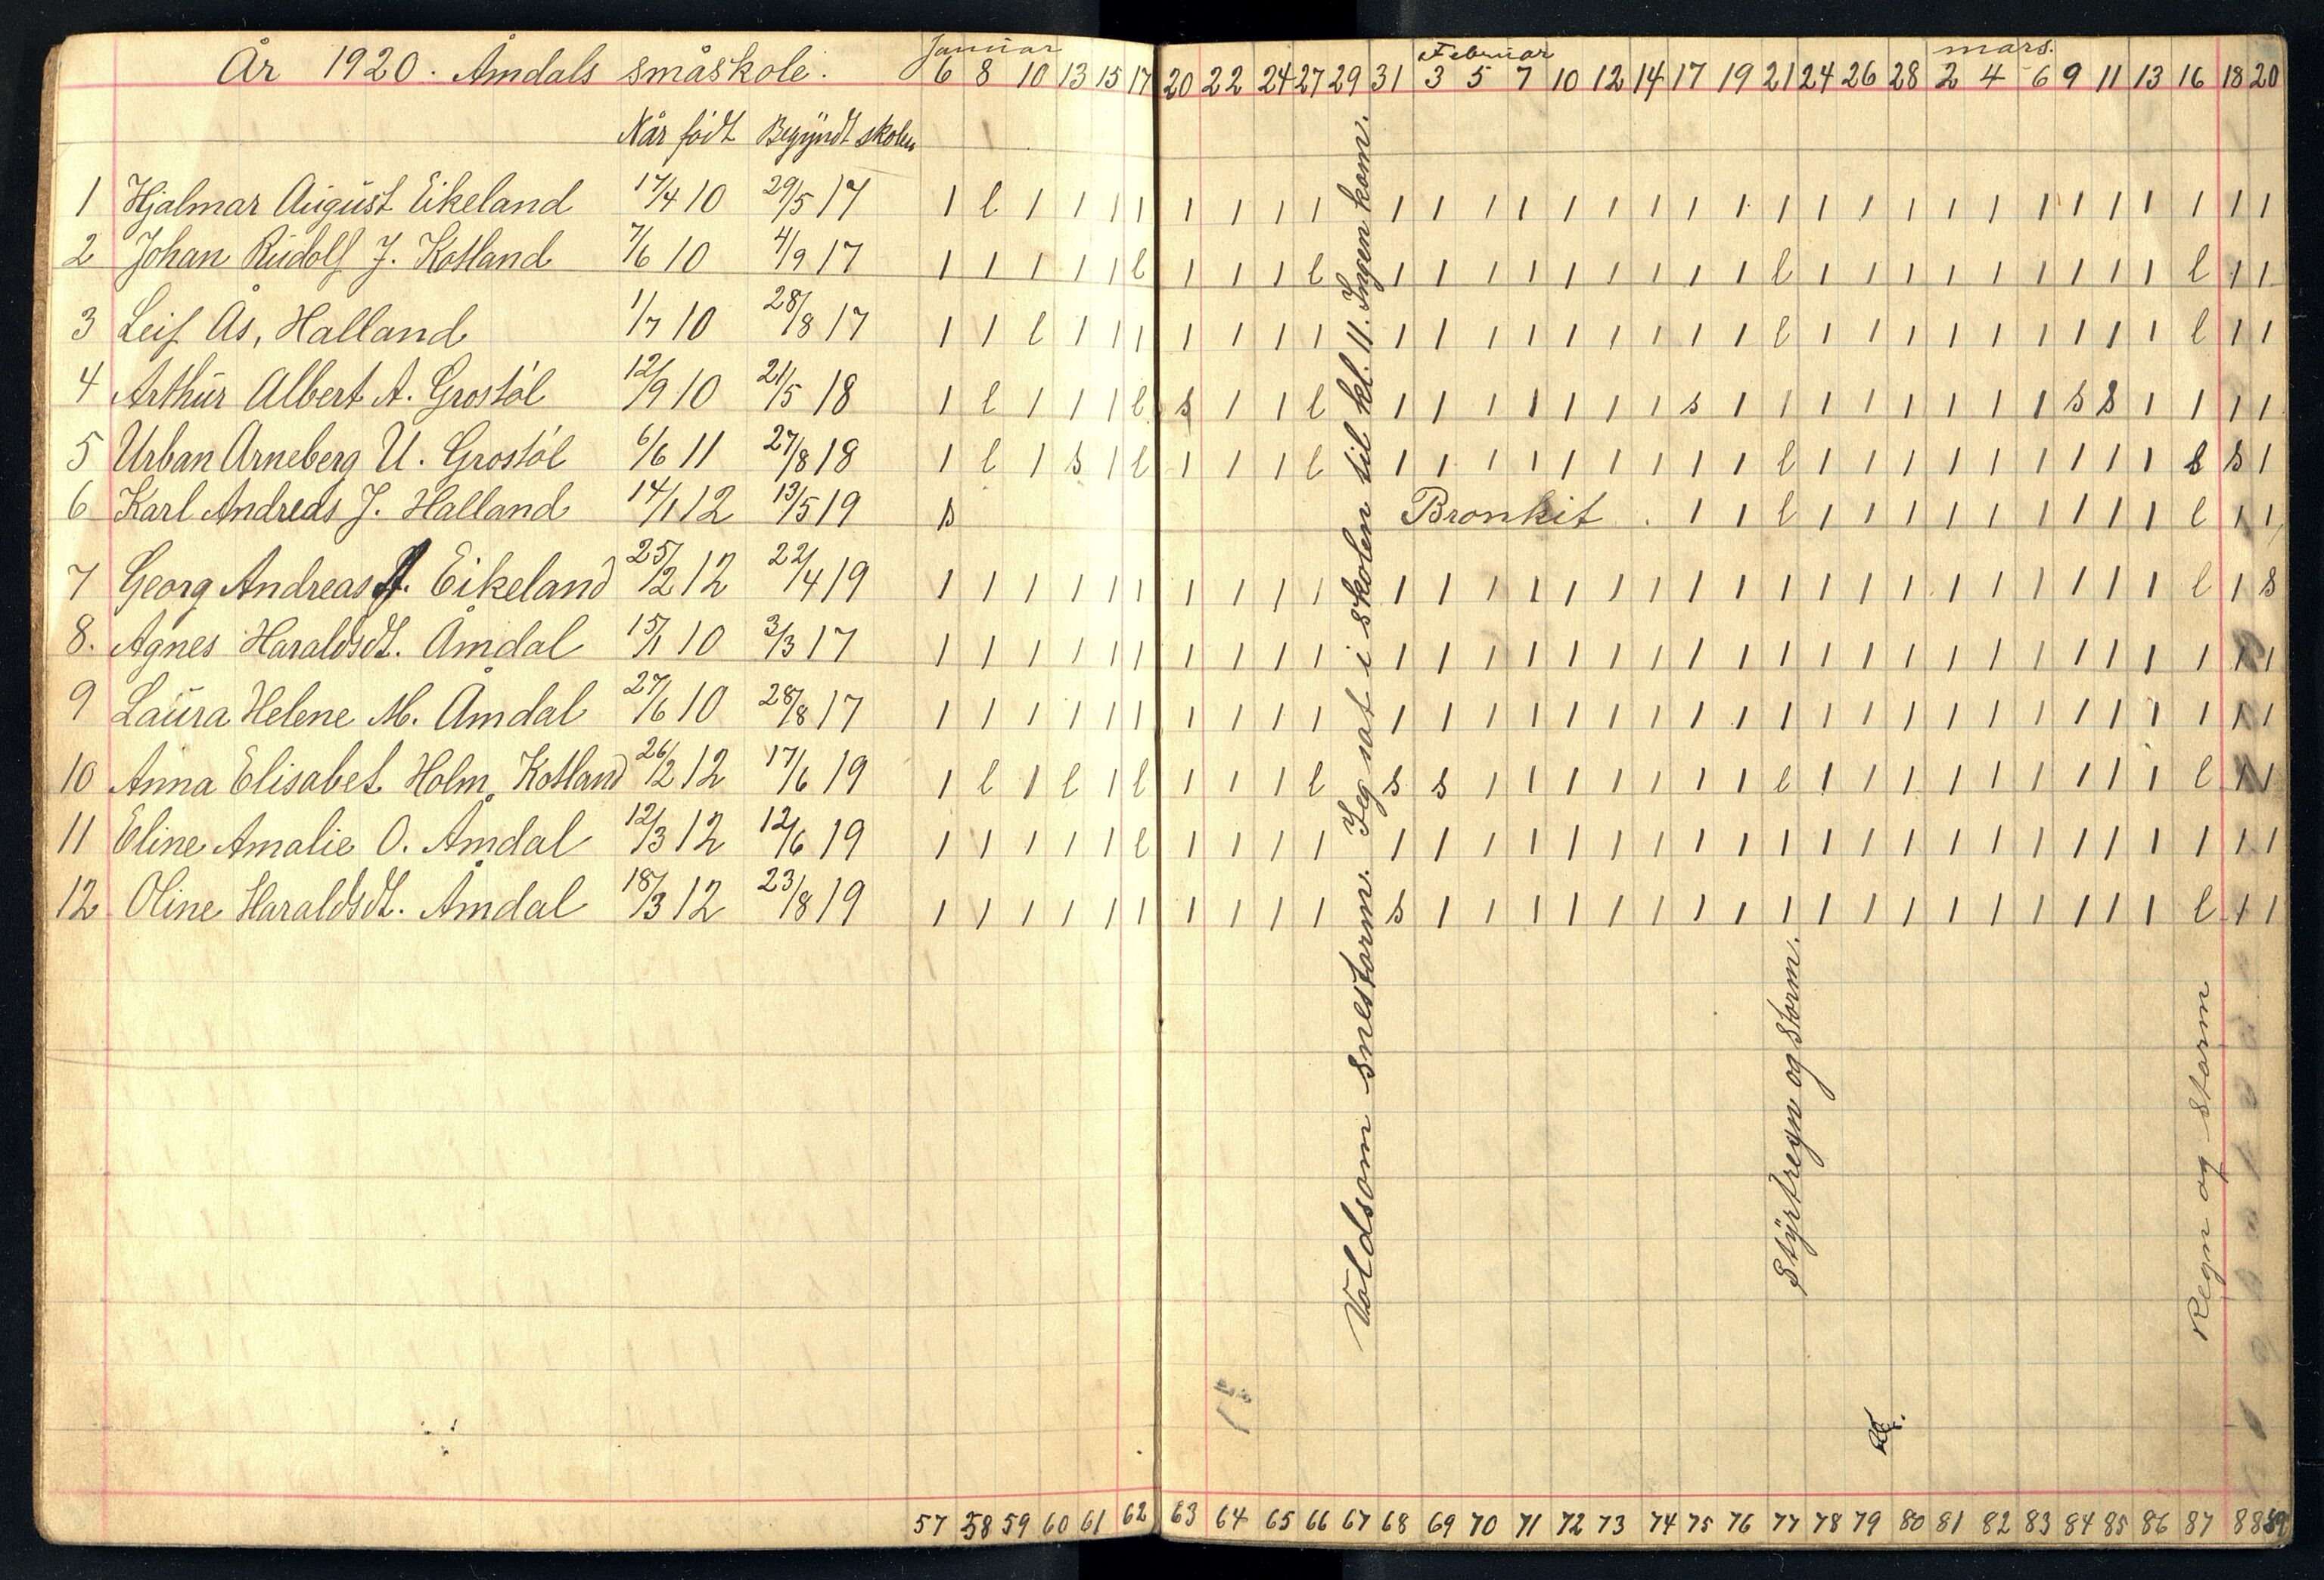 År 1920. Åmdals småskole. Januar 6 8 10 13 15 17 20 22 24 27 29 31 Februar 3 5 7 10 12 14 17 19 21 24 26 28 mars. 2 4 6 9 11 13 16 18 20
Når födt Begyndt skolen
1 Hjalmar August Eikeland 17/4 10 29/5 17 1 l 1 1 1 1 1 1 1 1 1 1 1 1 1 1 1 1 1 1 1 1 1 1 1 1 1 1 1 1 1 1
2 Johan Rudolf J. Kotland 7/6 10 4/9 17 1 1 1 1 1 l 1 1 1 l 1 1 1 1 1 1 1 1 1 l 1 1 1 1 1 1 1 1 1 l 1 1
3 Leif Ås, Halland 1/7 10 28/8 17 1 1 l 1 1 1 1 1 1 1 1 1 1 1 1 1 1 1 1 l 1 1 1 1 1 1 1 1 1 l 1 1
4 Arthur Albert A. Grostöl 12/9 10 21/5 18 1 l 1 1 1 l s 1 1 l 1 1 1 1 1 1 1 s 1 1 1 1 1 1 1 1 s s 1 1 1 1
5 Urban Arneberg U. Grostöl 6/6 11 27/8 18 1 l 1 s 1 l 1 1 1 l 1 1 1 1 1 1 1 1 1 l 1 1 1 1 1 1 1 1 1 l s 1
6 Karl Andreas J. Halland 14/1 12 13/5 19 s Bronkit . 1 1 l 1 1 1 1 1 1 1 1 1 l 1 1
7 Georg Andreas A. Eikeland 25/2 12 22/4 19 1 1 1 1 1 1 1 1 1 1 1 1 1 1 1 1 1 1 1 1 1 1 1 1 1 1 1 1 1 l 1 s
8. Agnes Haraldsdt. Åmdal 15/1 10 3/3 17 1 1 1 1 1 1 1 1 1 1 1 1 1 1 1 1 1 1 1 1 1 1 1 1 1 1 1 1 1 1 1 1
9 Laura Helene M. Åmdal 27/6 10 28/8 17 1 1 1 1 1 1 1 1 1 1 1 1 1 1 1 1 1 1 1 1 1 1 1 1 1 1 1 1 1 1 1 1
10 Anna Elisabet Holm, Kotland 26/2 12 17/6 19 1 l 1 l 1 l 1 1 1 l s s 1 1 1 1 1 1 1 l 1 1 1 1 1 1 1 1 1 l 1 1
11 Eline Amalie O. Åmdal 12/3 12 12/6 19 1 1 1 1 1 l 1 1 1 1 1 1 1 1 1 1 1 1 1 1 1 1 1 1 1 1 1 1 1 1 1 1
12 Oline Haraldsdt. Åmdal 18/3 12 23/8 19 1 1 1 1 1 1 1 1 1 1 s 1 1 1 1 1 1 1 1 1 1 1 1 1 1 1 1 1 1 l 1 1
Voldsom snestorm. Jeg sat i skolen til kl. 11. Ingen kom.
Styrtregn og storm.
Regn og storm
57 58 59 60 61 62 63 64 65 66 67 68 69 70 71 72 73 74 75 76 77 78 79 80 81 82 83 84 85 86 87 88 89